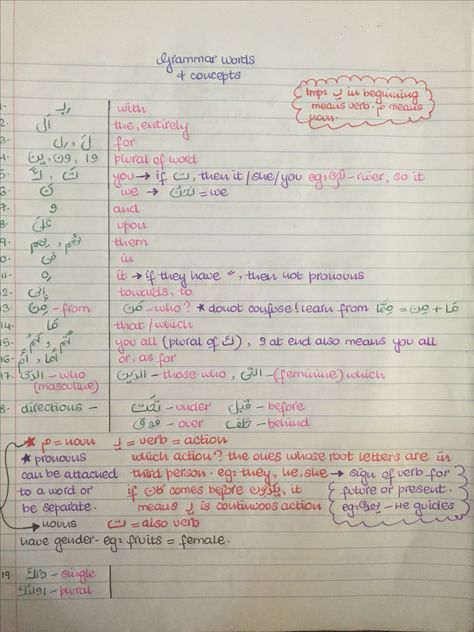 Grammar words
& concepts
Imp: يـ in beginning
means verb. م means
noun.
بِـ with
2. اَلْ the, entirely
لَ, لِ for
4. وا, ون, ين plural of word
5. you → if تَ, then it/she/you eg: - river, so it
نَ we → نَحْنُ = we
7. و and
8. عَلَىٰ upon
9. هُمْ, هِمْ them
فِى in
11. هُ it → if they have ", then not pronouns
12. إِلَىٰ towards, to
13. مِنْ - from مَنْ - who? * do not confuse! learn from مِمَّا = مِنْ + مَا
14. مَا that/which
15. كُمْ you all (plural of كَ), و at end also means you all
16. أَوْ, أَمَّا or, as for
17. الَّذِى - who الَّذِينَ - those who, الَّتِى - (feminine) which
(masculine)
8. directions - تَحْتَ - under قَبْلَ - before
فَوْقَ - over خَلْفَ - behind
* م = noun يـ = verb = action
* pronouns which action? the ones whose root letters are in
can be attached third person. eg: they, he, she → sign of verb for
to a word or if كَانَ comes before , it future or present.
be separate. means يـ is continuous action eg: يَهْدِى - He guides
→ nouns ت = also verb
have gender. eg: fruits = female.
19. - single
- plural